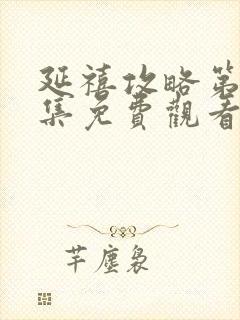 延禧攻略第
集免費觀看
芊塵裊